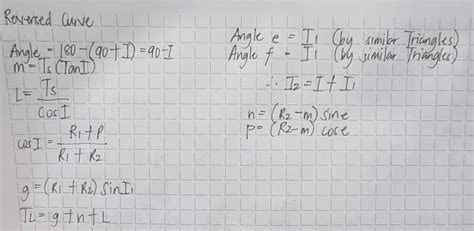 Reversed Curve
Angle = 180 - (90 + I) = 90 - I
m = Ts (Tan I)
L = Ts / Cos I
cos I = R1 + P / R1 + R2
g = (R1 + R2) Sin I1
TL = g + n + L
Angle e = I1 (by similar Triangles)
Angle f = I1 (by similar Triangles)
∴ I2 = I + I1
n = (R2 - m) sin e
p = (R2 - m) cos e